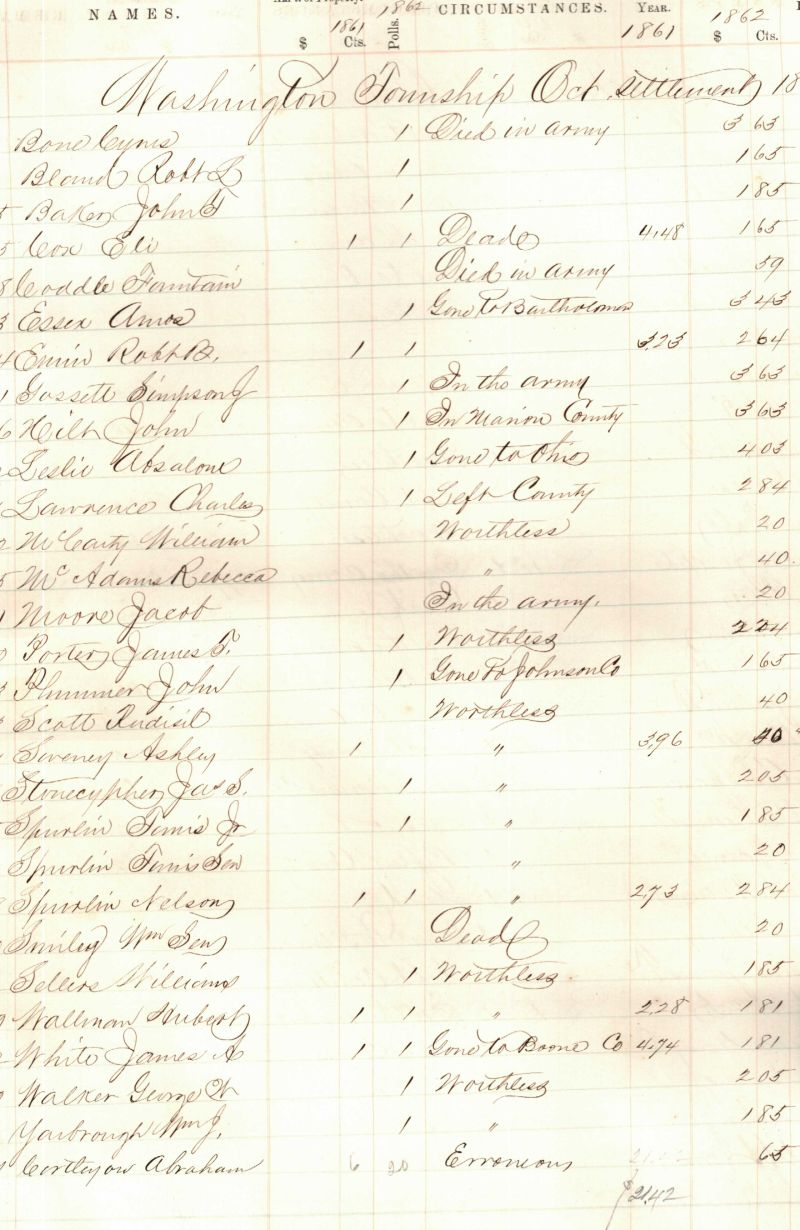 NAMES. 1861 $ Cts. 1862 Polls. CIRCUMSTANCES. YEAR. 1861 1862 $ Cts.
Washington Township Oct. settlement 18
Bone Cyrus 1 Died in army 3 63
Bland Robt L 1 1 65
Baker John F 1 1 85
Cox Eli 1 1 Dead 4.48 1 65
Coddle Fountain Died in army 59
Essex Amos 1 Gone to Bartholomew 3 43
Ervin Robt B. 1 1 3.23 2 64
Gossett Simpson J 1 In the army 3 63
Hilt John 1 In Marion County 3 63
Leslie Absalone 1 Gone to Ohio 4 03
Lawrence Charles 1 Left County 2 84
McCarty William Worthless 20
McAdams Rebecca " 40.
Moore Jacob In the army. 20
Porter James T. 1 Worthless 2 24
Plummer John 1 Gone to Johnson Co 1 65
Scott Rudisil Worthless 40
Soveney Ashley 1 " 3.96 40
Stonecypher Jas S. 1 " 2 05
Spurlin Tunis Jr 1 " 1 85
Spurlin Tunis Sen " 20
Spurlin Nelson 1 1 " 2.73 2 84
Smiley Wm Sen Dead 20
Sellers Williams 1 Worthless 1 85
Wallman Hubert 1 1 " 2.28 1 81
White James A 1 1 Gone to Boone Co 4.74 1 81
Walker George W 1 Worthless 2 05
Yarbrough Wm J. 1 " 1 85
Cortleyow Abraham 6 20 Erroneous 65
$21.42